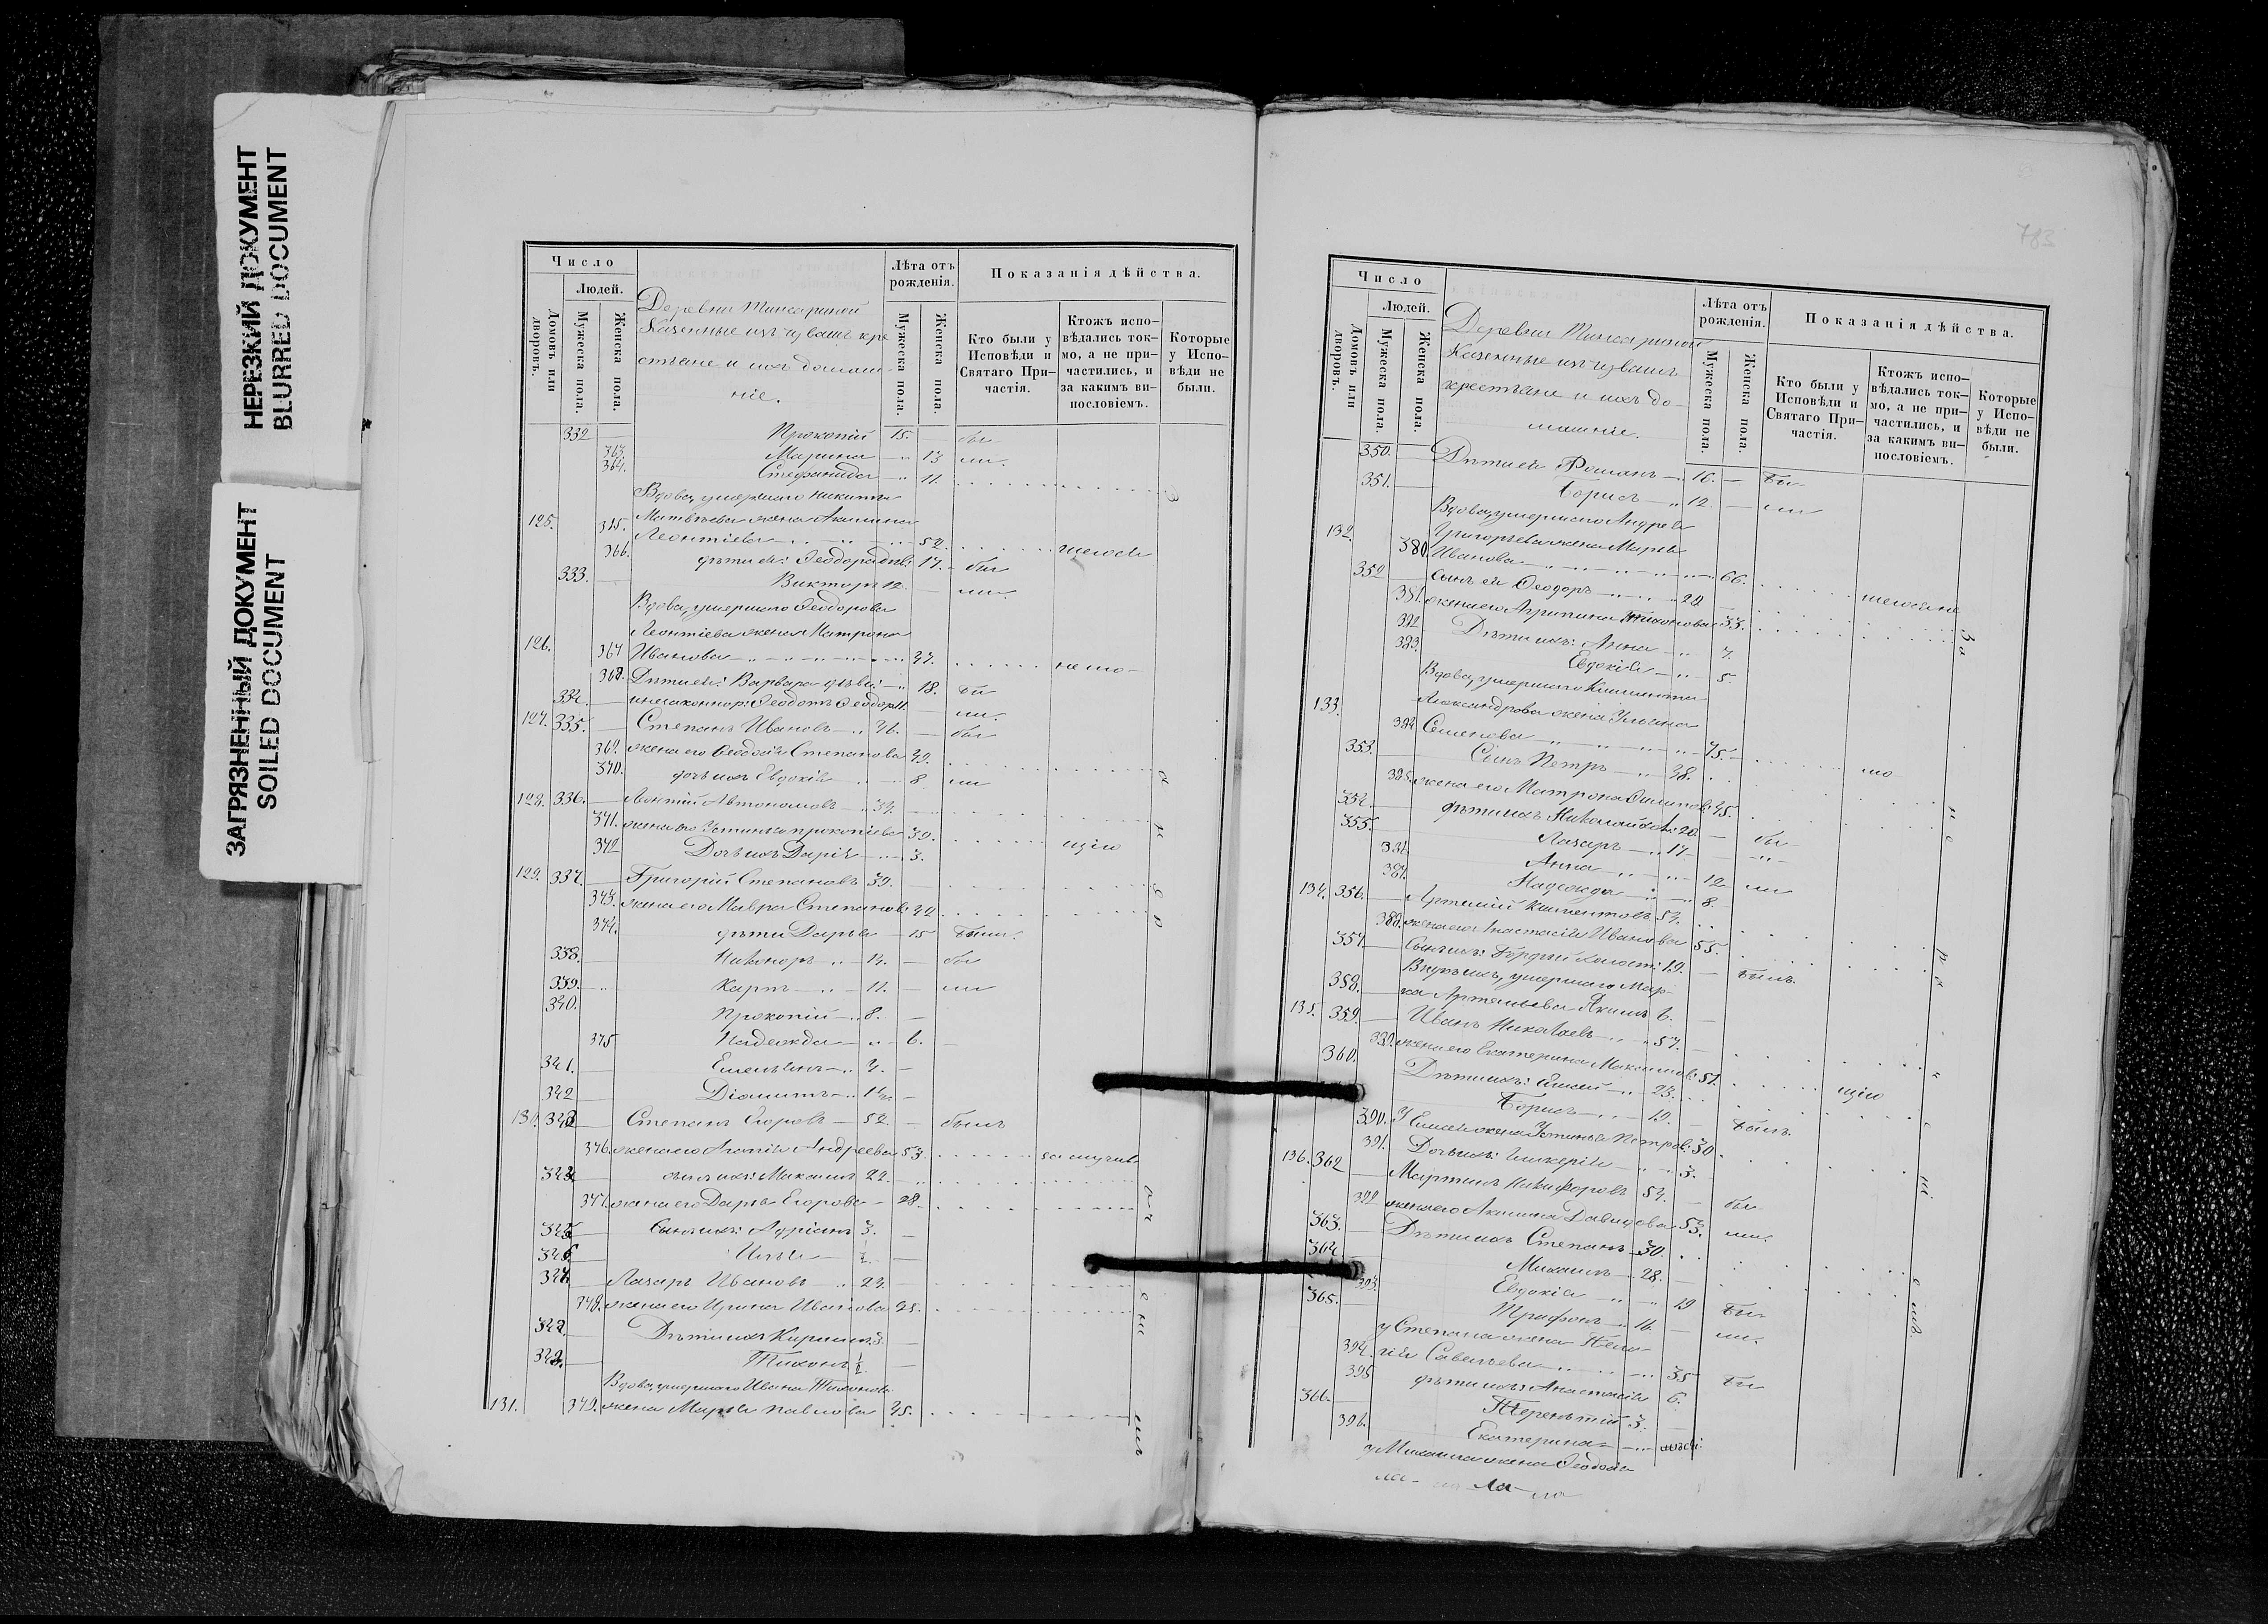 НЕРЕЗКИЙ ДОКУМЕНТ
BLURRED DOCUMENT
ЗАГРЯЗНЕННЫЙ ДОКУМЕНТ
SOILED DOCUMENT
Число
Людей.
Домовъ или дворовъ.
Мужеска пола.
Женска пола.
Деревни
Казенные изъ чувашъ кре
стьяне и ихъ домаш-
ніе.
Лѣта отъ рожденія.
Мужеска пола.
Женска пола.
Показанія дѣйства.
Кто были у Исповѣди и Святаго При-частія.
Ктожъ испо-вѣдались ток-мо, а не при-частились, и за какимъ ви-нословіемъ.
Которые у Испо-вѣди не были.
332 Прокопій 15. бы
363. Марина 13 ли.
364. Стефанида 11.
Вдова, умершаго Никиты
Матвѣева жена Акилина
125. 365. Леонтіева 52.
366. дѣти ея: Ѳеодора дѣв: 17. бы
333. Викторъ 12. ли.
Вдова, умершаго Ѳеодора
Леонтіева жена Матрона
126. 367 Иванова 47.
368. Дѣти ея: Варвара дѣви: 18. бы
334. незаконнор: Ѳеодотъ Ѳеодор 11. ли.
127. 335. Степанъ Ивановъ 46. бы
369. жена его Ѳеодосія Степанова 49.
370. дочь ихъ Евдокія 8 ли
128. 336. Леонтій Автономовъ 34.
371. жена его Устинья Прокопіева 39.
372 Дочь ихъ Дарія 3.
129. 337. Григорій Степановъ 39.
373. жена его Мавра Степанов: 42
374. дѣти Дарья 15 были.
338. Никоноръ 14. бы
339. Карпъ 11. ли
340. Прокопій 8.
375 Надежда 6.
341. Емельянъ 4.
342 Діомитъ 1½
130. 343 Степанъ Егоровъ 52. былъ
376. жена его Агапія Андреева 53.
344 сынъ ихъ: Максимъ 22.
377. жена его Дарья Егорова 28.
345 Сынъ ихъ: Адріанъ 3.
346 Илья ½.
347. Лазарь Ивановъ 24.
378. жена его Ирина Иванова 25.
348. Дѣти ихъ Кириллъ 3.
349. Тихонъ ½.
Вдова, умершаго Ивана Тихонова
131. 379. жена Марья Павлова 45.
783
Число
Людей.
Домовъ или дворовъ.
Мужеска пола.
Женска пола.
Деревни
Казенные изъ чувашъ
крестьяне и ихъ до-
машніе.
Лѣта отъ рожденія.
Мужеска пола.
Женска пола.
Показанія дѣйства.
Кто были у Исповѣди и Святаго При-частія.
Ктожъ испо-вѣдались ток-мо, а не при-частились, и за какимъ ви-нословіемъ.
Которые у Испо-вѣди не были.
350. Дѣти ея Романъ 16. бы
351. Борисъ 12. ли
Вдова, умершаго Андрея
Григорьева жена Марья
132. 380. Иванова 66.
352 Сынъ ея Ѳеодоръ 22
381. жена его Агрипина Тихонова 33.
382 Дѣти ихъ: Анна 7.
383. Евдокія 5.
Вдова, умершаго Климента
Александрова жена Ульяна
133. 384 Семенова 75.
353. Сынъ Петръ 48.
385. жена его Матрона Филипов: 45.
354. дѣти ихъ Николай 20 бы
355. Лазарь 17
386. Анна 12 ли
387. Надежда 8.
134. 356. Артемій Климентовъ 54.
388. жена его Анастасія Иванова 55.
357. Сынъ ихъ: Гордѣй холост: 19. былъ.
Внукъ ихъ, умершаго Мар-
358. ка Артемьева Якимъ 6.
135. 359. Иванъ Николаевъ 57.
389. жена его Екатерина Максимов: 51.
360. Дѣти ихъ: Елисей 23.
Борисъ 19. былъ.
390. У Елисея жена Устинья Петров: 30.
391. Дочь ихъ: Гликерія 3.
136. 362 Мартинъ Никифоровъ 54. бы
392 жена его Акилина Давидова 53. ли.
363. Дѣти ихъ Степанъ 30.
364 Михаилъ 28.
393. Евдокія 19 бы
365. Трифонъ 16. ли.
у Степана жена Пела-
394. гія Савельева 35 бы
395 дѣти ихъ: Анастасія 6.
366. Терентій 3.
396. Екатерина
у Михаила жена Ѳеодосія